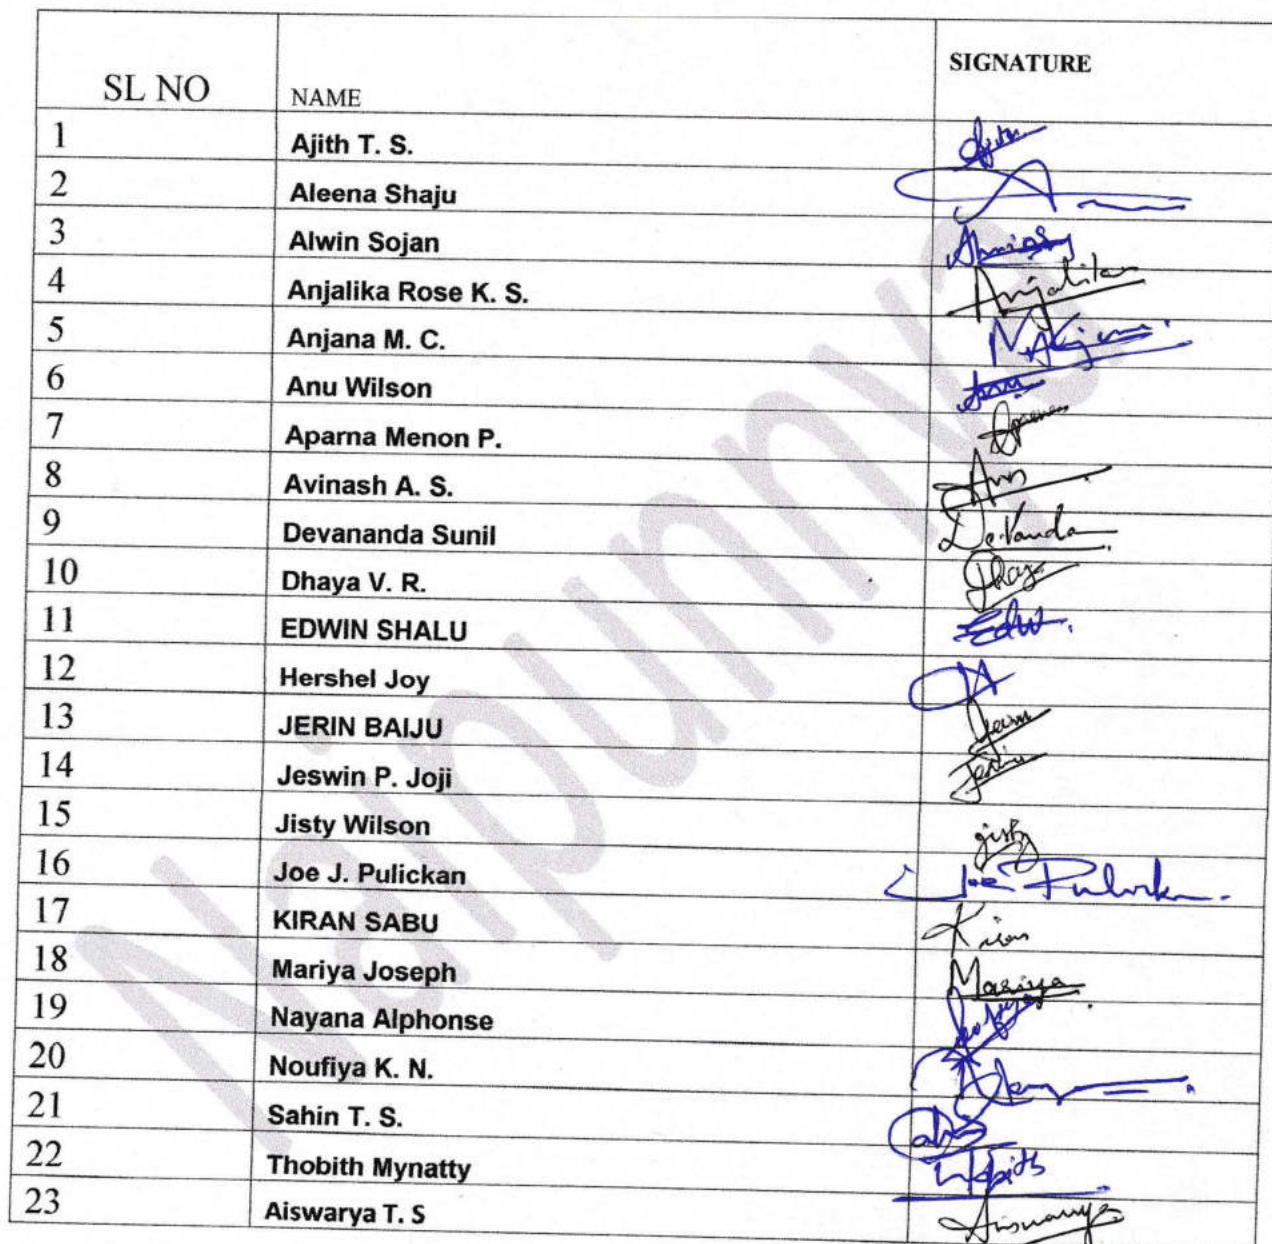 SL NO NAME SIGNATURE
1 Ajith T. S.
2 Aleena Shaju
3 Alwin Sojan
4 Anjalika Rose K. S. Anjalika
5 Anjana M. C.
6 Anu Wilson
7 Aparna Menon P.
8 Avinash A. S.
9 Devananda Sunil
10 Dhaya V. R. Dhaya
11 EDWIN SHALU Edw.
12 Hershel Joy
13 JERIN BAIJU
14 Jeswin P. Joji
15 Jisty Wilson
16 Joe J. Pulickan Joe
17 KIRAN SABU Kiran
18 Mariya Joseph Mariya
19 Nayana Alphonse
20 Noufiya K. N.
21 Sahin T. S.
22 Thobith Mynatty
23 Aiswarya T. S Aiswarya
Naipunnya